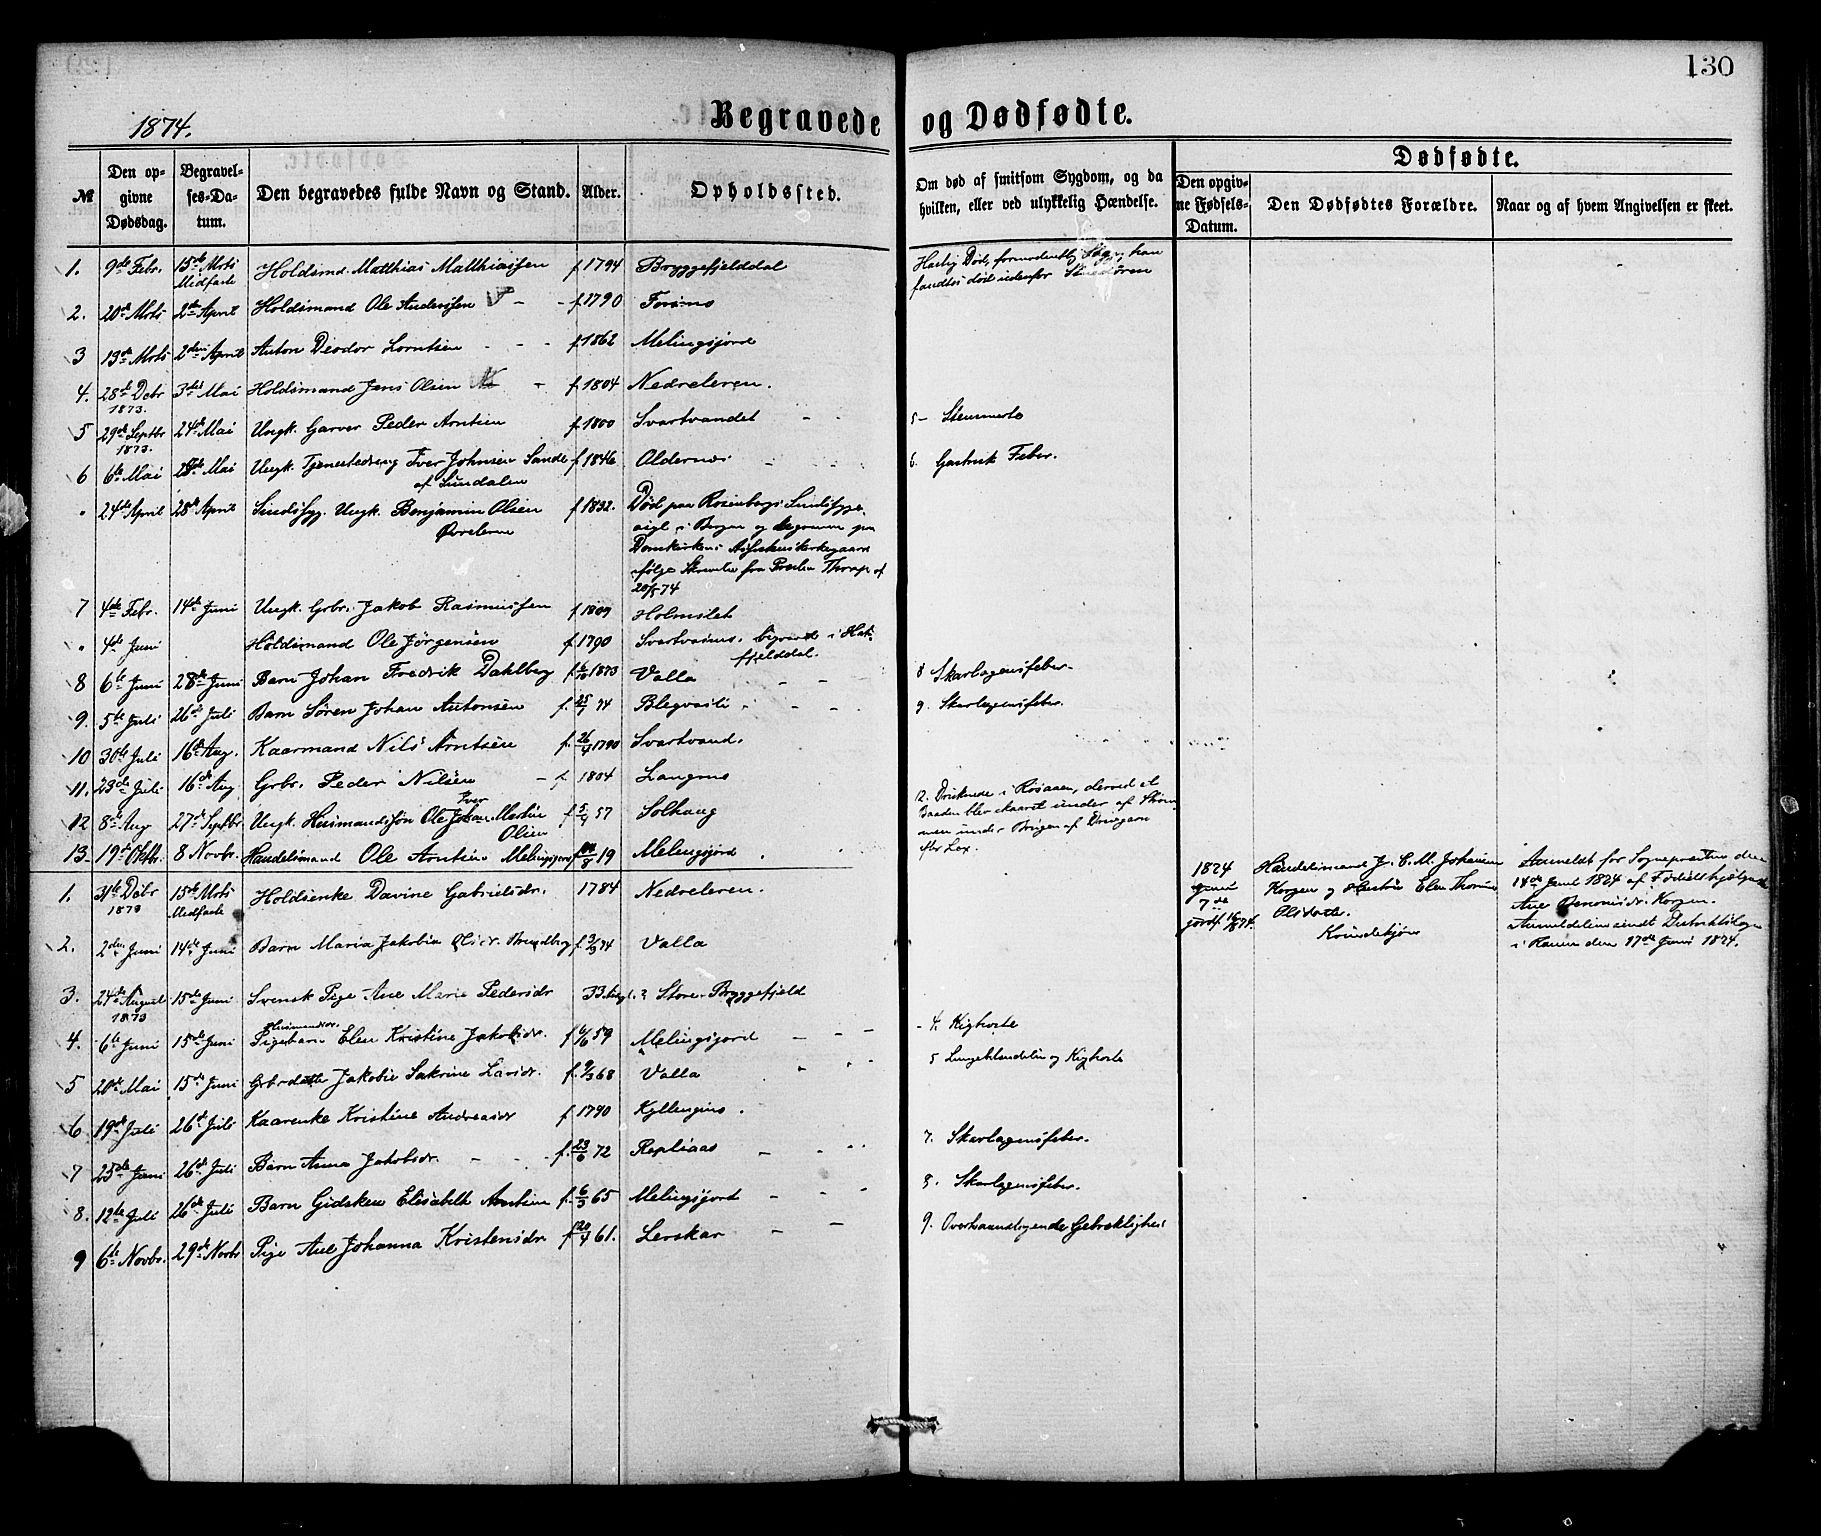 130
1874.
Begravede og Dødfødte.
№
Den opgivne Dødsdag.
Begravelses-Datum.
Den begravedes fulde Navn og Stand.
Alder.
Opholdssted.
Om død af smitsom Sygdom, og da hvilken, eller ved ulykkelig Hændelse.
Dødfødte.
Den opgivne Fødsels-Datum.
Den Dødfødtes Forældre.
Naar og af hvem Angivelsen er skeet.
1. 9de Febr. 15de Mrts Midfaste Holdsmd. Matthias Matthiassen f 1794 Bryggefjelddal Hastig Død, formodentlig Slag, han fandtes død udenfor
2. 20de Mrts 2den April Holdsmand Ole Andersen f. 1790 Forsmo
3 13de Mrts 2den April Anton Deodor Lorntsen f 1862 Melingsjord
4. 28de Debr 1873. 3die Mai Holdsmand Jens Olsen f. 1804 Nedreleren.
5 29de Septbr 1873. 24de Mai Ungk. Garver Peder Arntsen f. 1800 Svartvandet 5-
6 6te Mai 28de Mai Ungk. Tjenestedreng Iver Johnsen Sande af Sundalen f 1846 Aldernes 6. Gastrisk Feber.
" 24de April 28de April Sindssyg. Ungk. Benjamin Olsen Øvreleren f 1832. Død paa Rosenbergs Sindssyge-
asyl i Bergen og begraven paa
Domkirkens Assistenskirkegaard
ifølge Skrivelse fra Præsten Thorup af
20/5 74
7 4de Febr. 14de Juni Ungk. Grbr. Jakob Rasmussen f 1809 Holmslet
" 4de Juni Holdsmand Ole Jörgensen f. 1790 Svartvasmo. begravet i Hatfjelddal.
8 6te Juni 28de Juni Barn Johan Fredrik Dahlberg 1873 Valla 8 Skarlagensfeber.
9. 5te Juli 26de Juli Barn Sören Johan Antonsen f. 74 Blegvasli 9. Skarlagensfeber.
10 30te Juli 16de Aug. Kaarmand Nils Arntsen f. 26/4 1790 Svartvand.
11. 23de Juli 16de Aug Grbr. Peder Nilsen f 1804 Langmo
12 8de Aug 27de Septbr. Ungk. Husmandssön Ole Iver Martin Olsen f 57 Solhaug 12. Druknede i Rösaaen, derved at
Baaden blev skaaret under af Ström-
men under Brugen af Drivgarn
efter Lax.
13. 19de Oktbr. 8 Novbr. Handelsmand Ole Arntsen Melingsjord 19 Melingsjord
1. 31te Debr 1873 15de Mrts Midfaste Holdsenke Davine Gabrielsdr. 1784 Nedreleren.
2. 2den Juni 14de Juni Barn Maria Jakobia Olsdr. f. 74 Valla
3. 24de August 1873 15de Juni Svensk Pige Ane Marie Pedersdr 33 Store-Bryggefjeld
4. 6te Juni 15de Juni Husmandsdr. Pigebarn Elen Kristine Jakobsdr. f 59 Melingsjord 4. Kighoste
5 20de Mai 15de Juni Grbrdatter Jakobie Sakrine Larsdr. f. 9/3 68 Valla 5 Lungebetændelse og Kighoste
6 19de Juli 26de Juli Kaarenke Kristine Andreasdr f. 1790
7 25de Juni 26de Juli Barn Anna Jakobsdr. f. 23/6 72 Repliaas 7. Skarlagensfeber.
8. 12te Juli 26de Juli Barn Gidsken Elisabeth Arntsen f. 6/3 65 Melingsjord 8. Skarlagensfeber.
9 6te Novbr. 29de Novbr Pige Ane Johanna Kristensdr. f 20/4 61. Lerskar 9. Overhaandtagende Gebrækelighed
1824
Juni
7de
Handelsmand J. C. M. Johansen
Korgen og Hustru Elen
Olsdatter.
Anmeldt for Sognepresten den
14de Juni 1824 af Fødselshjelperske
Ane Benonisdr. Korgen.
Anmeldelsen sendt
i Ranen den 17de Juni 1824.